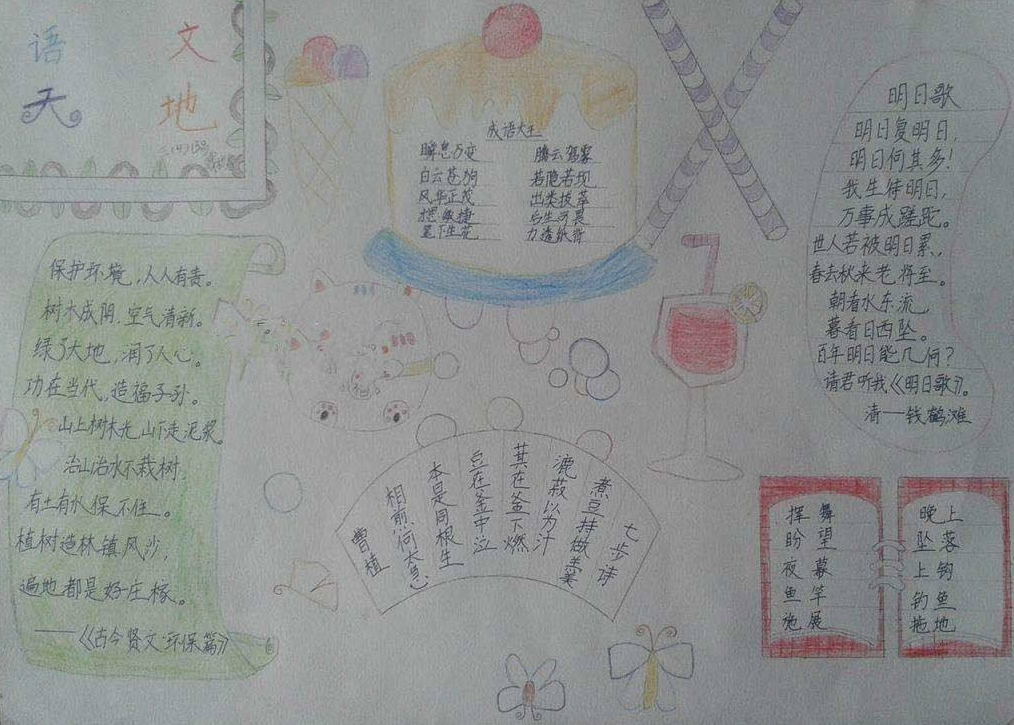 语文
天地
成语大王
瞬息万变
白云苍狗
风华正茂
才思敏捷
笔下生花
腾云驾雾
若隐若现
出类拔萃
后生可畏
力透纸背
明日歌
明日复明日，
明日何其多！
我生待明日，
万事成蹉跎。
世人若被明日累，
春去秋来老将至。
朝看水东流，
暮看日西坠。
百年明日能几何？
请君听我《明日歌》。
清——钱鹤滩
保护环境，人人有责。
树木成阴，空气清新。
绿了大地，润了人心。
功在当代，造福子孙。
山上树木光，山下走泥浆。
治山治水不栽树，
有土有水保不住。
植树造林镇风沙，
遍地都是好庄稼。
——《古今贤文·环保篇》
七步诗
煮豆持做羹
漉菽以为汁
萁在釜下燃
豆在釜中泣
本是同根生
相煎何太急
曹植
挥舞
盼望
夜幕
鱼竿
施展
晚上
坠落
上钩
钓鱼
拖地